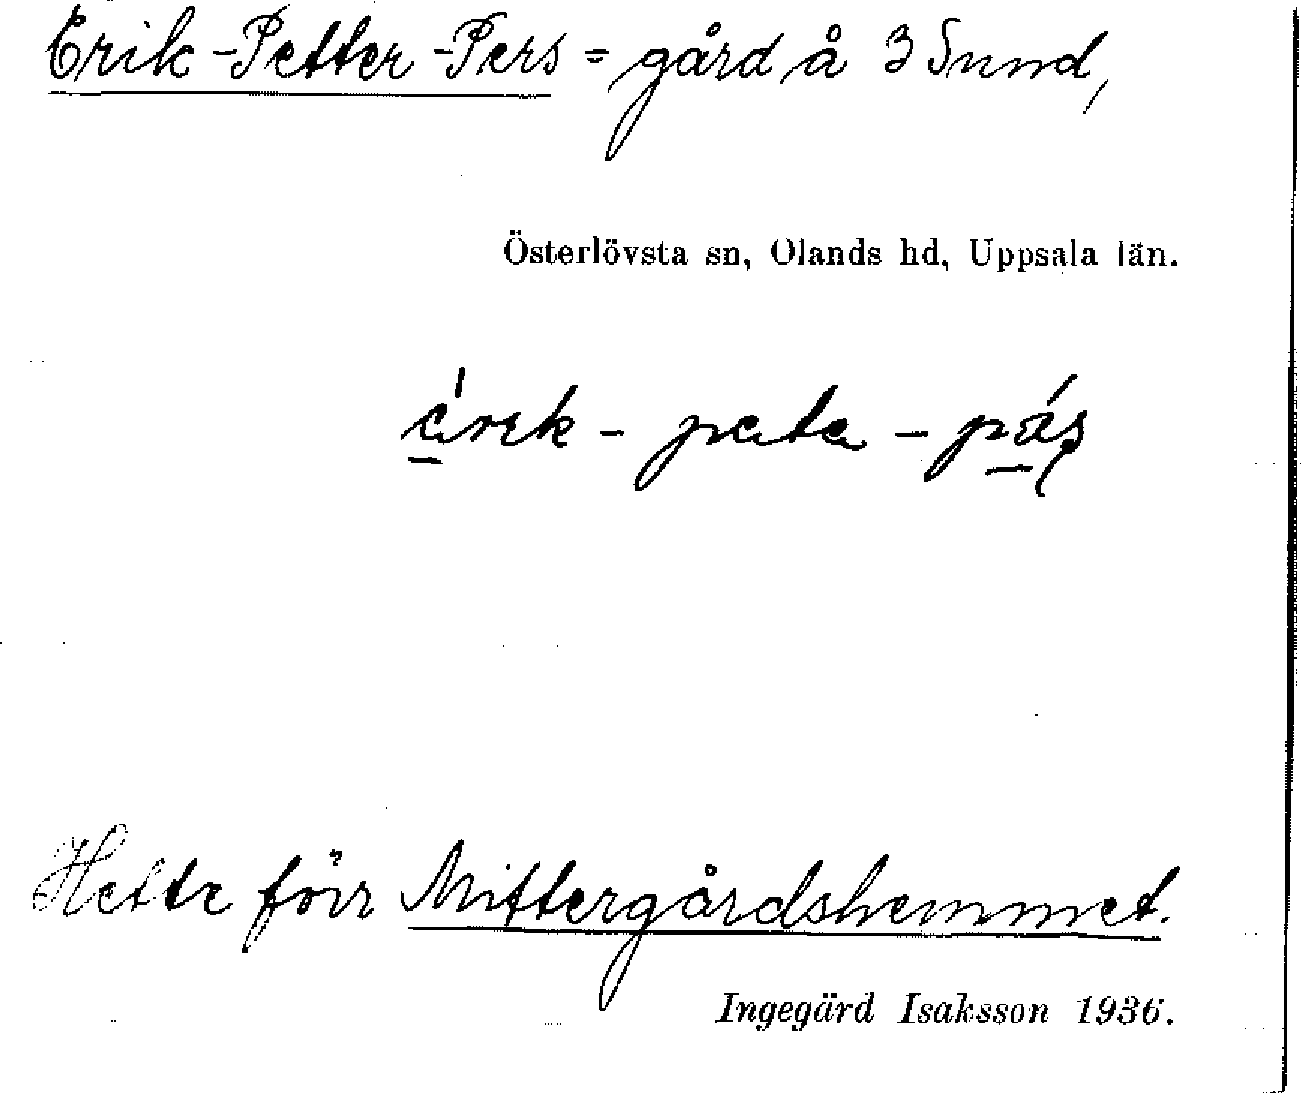 Erik-Petter-Pers = gård å 3 Sund,
Österlövsta sn, Olands hd, Uppsala län.
Hette förr Mittergårdshemmet.
Ingegärd Isaksson 1936.